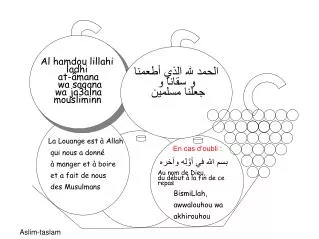 Al hamdou lillahi
ladhi
at-amana
wa saqana
wa ja3alna
mousliminn
الحمد لله الذي أطعمنا
و سقانا و
جعلنا مسلمين
La Louange est à Allah
qui nous a donné
à manger et à boire
et a fait de nous
des Musulmans
En cas d'oubli :
بسم الله في أوّله وآخره
Au nom de Dieu,
du début à la fin de ce
repas
BismiLlah,
awwalouhou wa
akhirouhou
Aslim-taslam